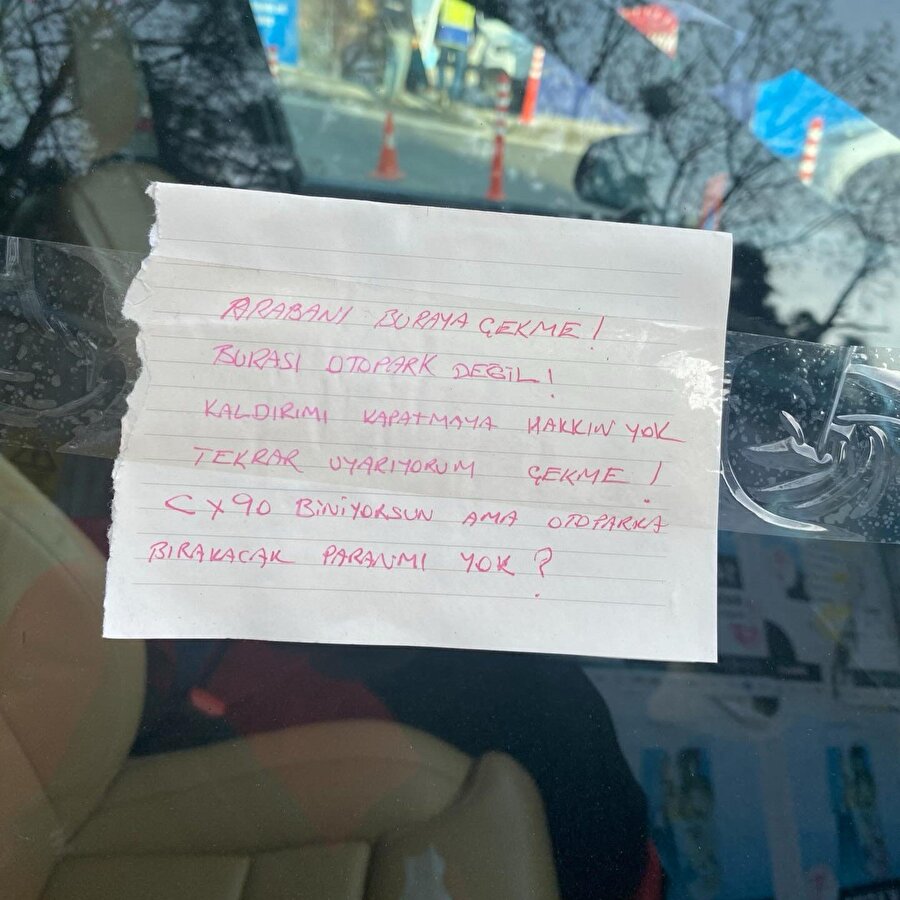 ARABANI BURAYA ÇEKME!
BURASI OTOPARK DEĞİL!
KALDIRIMI KAPATMAYA HAKKIN YOK
TEKRAR UYARIYORUM ÇEKME!
CX90 BİNİYORSUN AMA OTOPARKA
BIRAKACAK PARANMI YOK?